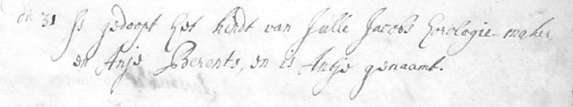 den 31 Is gedoopt het kindt van Jelle Jacobs horologie-maker
en Anje Berents, en is Antje genaamt.